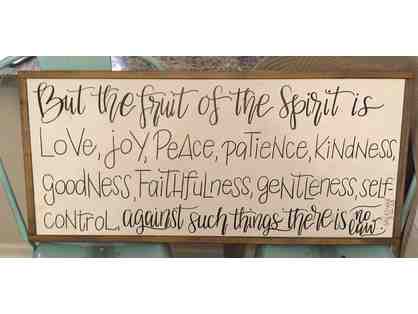 But the fruit of the Spirit is
Love, joy, Peace, patience, kindness,
goodness, Faithfulness, gentleness, self-
control, against such things there is no law.